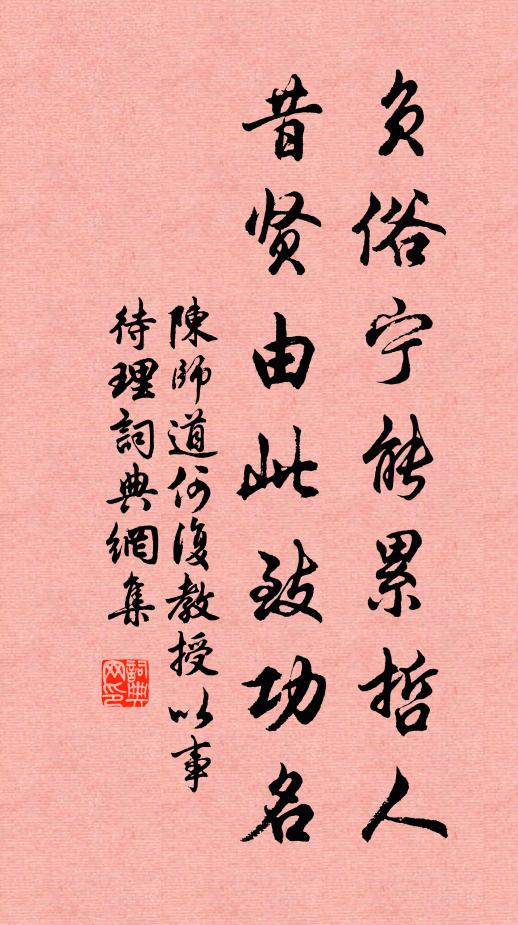 负俗宁能累哲人
昔贤由此致功名
陳師道何復教授以事
待理詞典網集
詞典网印